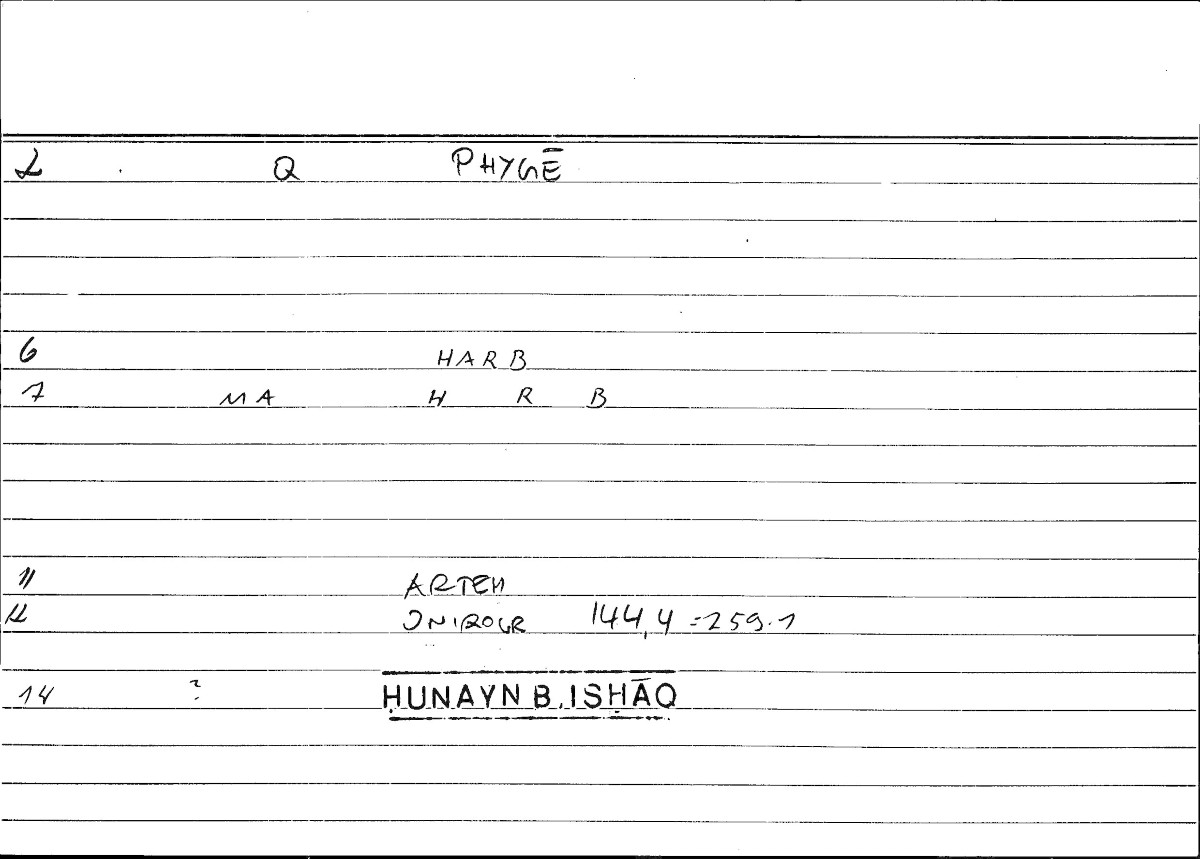 2 Q PHYGĒ
6 HARB
7 MA H R B
11 ARTEM
12 ONIROCR 144,4 = 259.1
14 ? ḤUNAYN B. ISḤĀQ